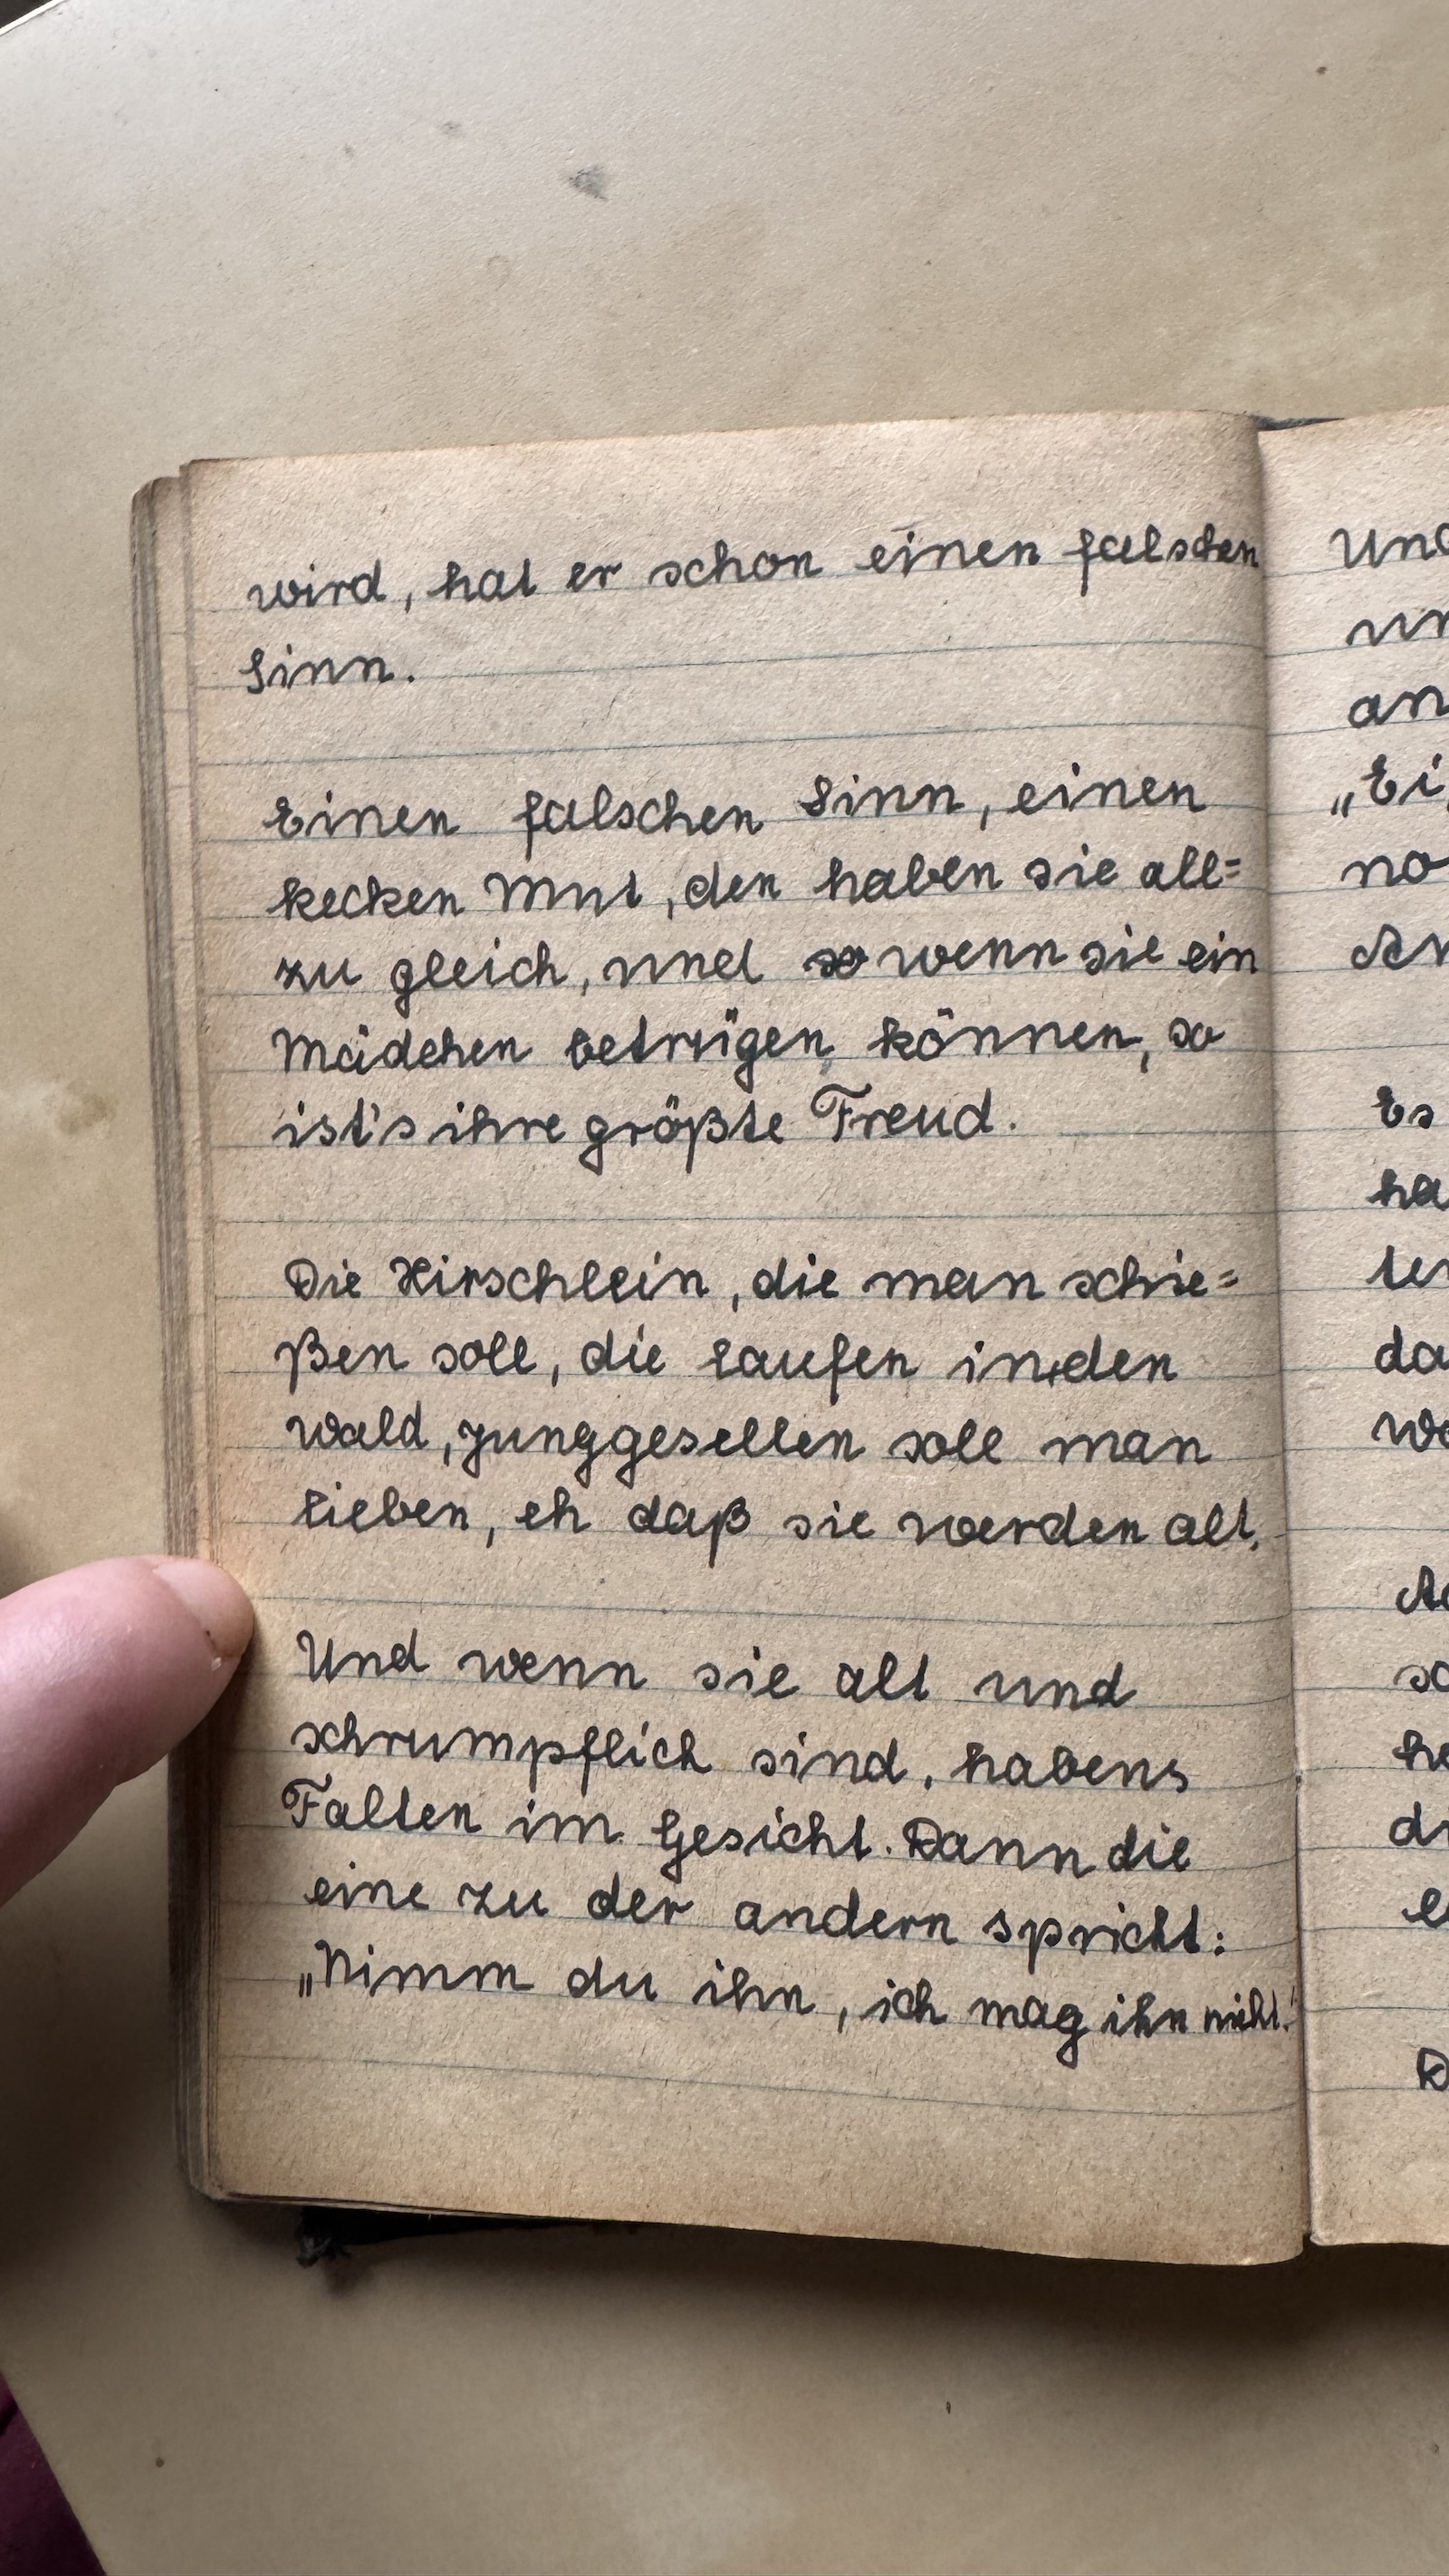 wird, hat er schon einen falschen
Sinn.
Einen falschen Sinn, einen
kecken Mut, den haben sie all=
zu gleich, und so wenn sie ein
Mädchen betrügen können, so
ist's ihre größte Freud.
Die Hirschlein, die man schie=
ßen soll, die laufen in den
Wald, Junggesellen soll man
lieben, eh daß sie werden alt.
Und wenn sie alt und
schrumpflich sind, habens
Falten im Gesicht. Dann die
eine zu der andern spricht:
„Nimm du ihn, ich mag ihn nicht!
Und
un
an
„Ei
no
Es
ha
ter
da
so
he